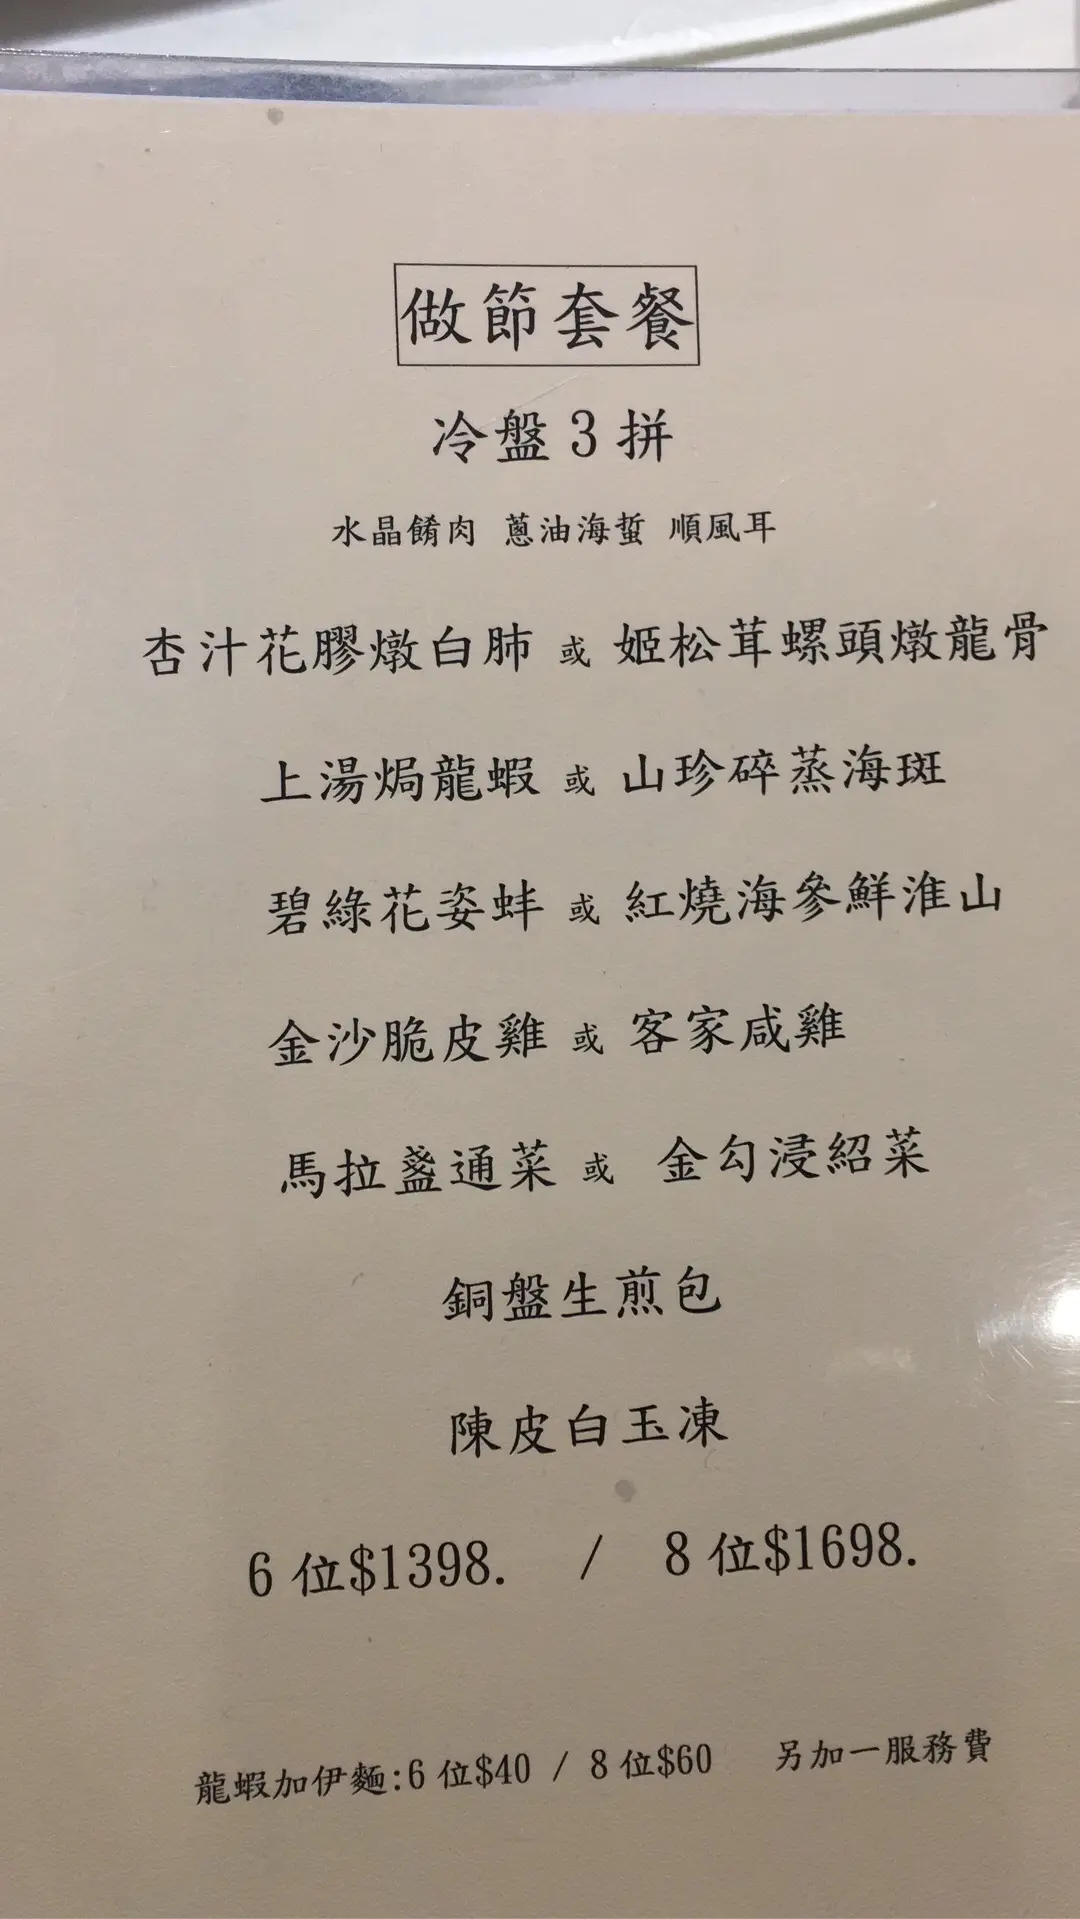 做節套餐
冷盤3拼
水晶餚肉 蔥油海蜇 順風耳
杏汁花膠燉白肺 或 姬松茸螺頭燉龍骨
上湯焗龍蝦 或 山珍碎蒸海斑
碧綠花姿蚌 或 紅燒海參鮮淮山
金沙脆皮雞 或 客家咸雞
馬拉盞通菜 或 金勾浸紹菜
銅盤生煎包
陳皮白玉凍
6位$1398. / 8位$1698.
龍蝦加伊麵:6位$40 / 8位$60 另加一服務費